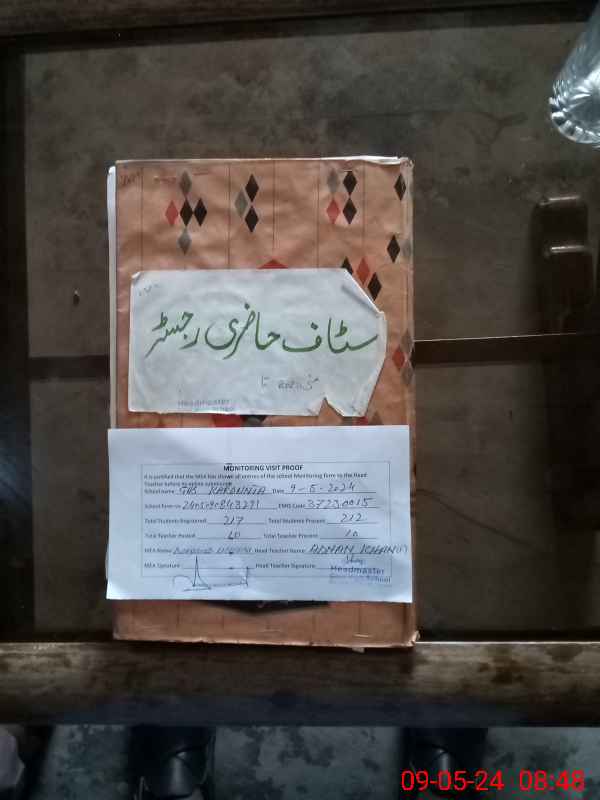 سٹاف حاضری رجسٹر
Headmaster
MONITORING VISIT PROOF
It is certified that the MEA has shown all entries of the school Monitoring form to the Head
Teacher before its online submission
School name GHS KAROUNTA Date 9-5-2024
School form no 2405090843291 EMIS Code 37230015
Total Students Registered 217 Total Students Present 212
Total Teacher Posted 10 Total Teacher Present 10
MEA Name Head Teacher Name ADNAN KHAN
MEA Signature Head Teacher Signature
Headmaster
School
09-05-24 08:48